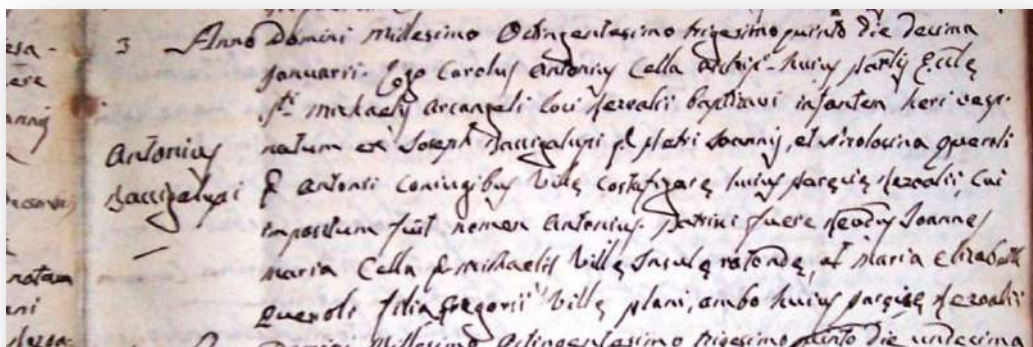 3 Anno Domini Millesimo Octingentesimo trigesimo quinto die decima
Januarii. Ego Carolus Antonius Cella Archip. huius parlis Eccle
Sti Michaelis Arcangeli loci Nezoalii baptizavi infantem heri vesp.
Antonius natum ex Joseph Baccigalupi q. Petri Joannis, et Nicolosina Queroli
Baccigalupi q. Antonii coniugibus Villę Costafigarę huius paręcię Nezoalii, cui
impositum fuit nomen Antonius. Patrini fuere Joannes
Maria Cella q. Michaelis Villę Insulę rotondę, et Maria Elizabetta
Queroli filia Gregorii Villę plani, ambo huius parecięę Nezoalii
Domini Millesimo Octingentesimo trigesimo quinto die undecima